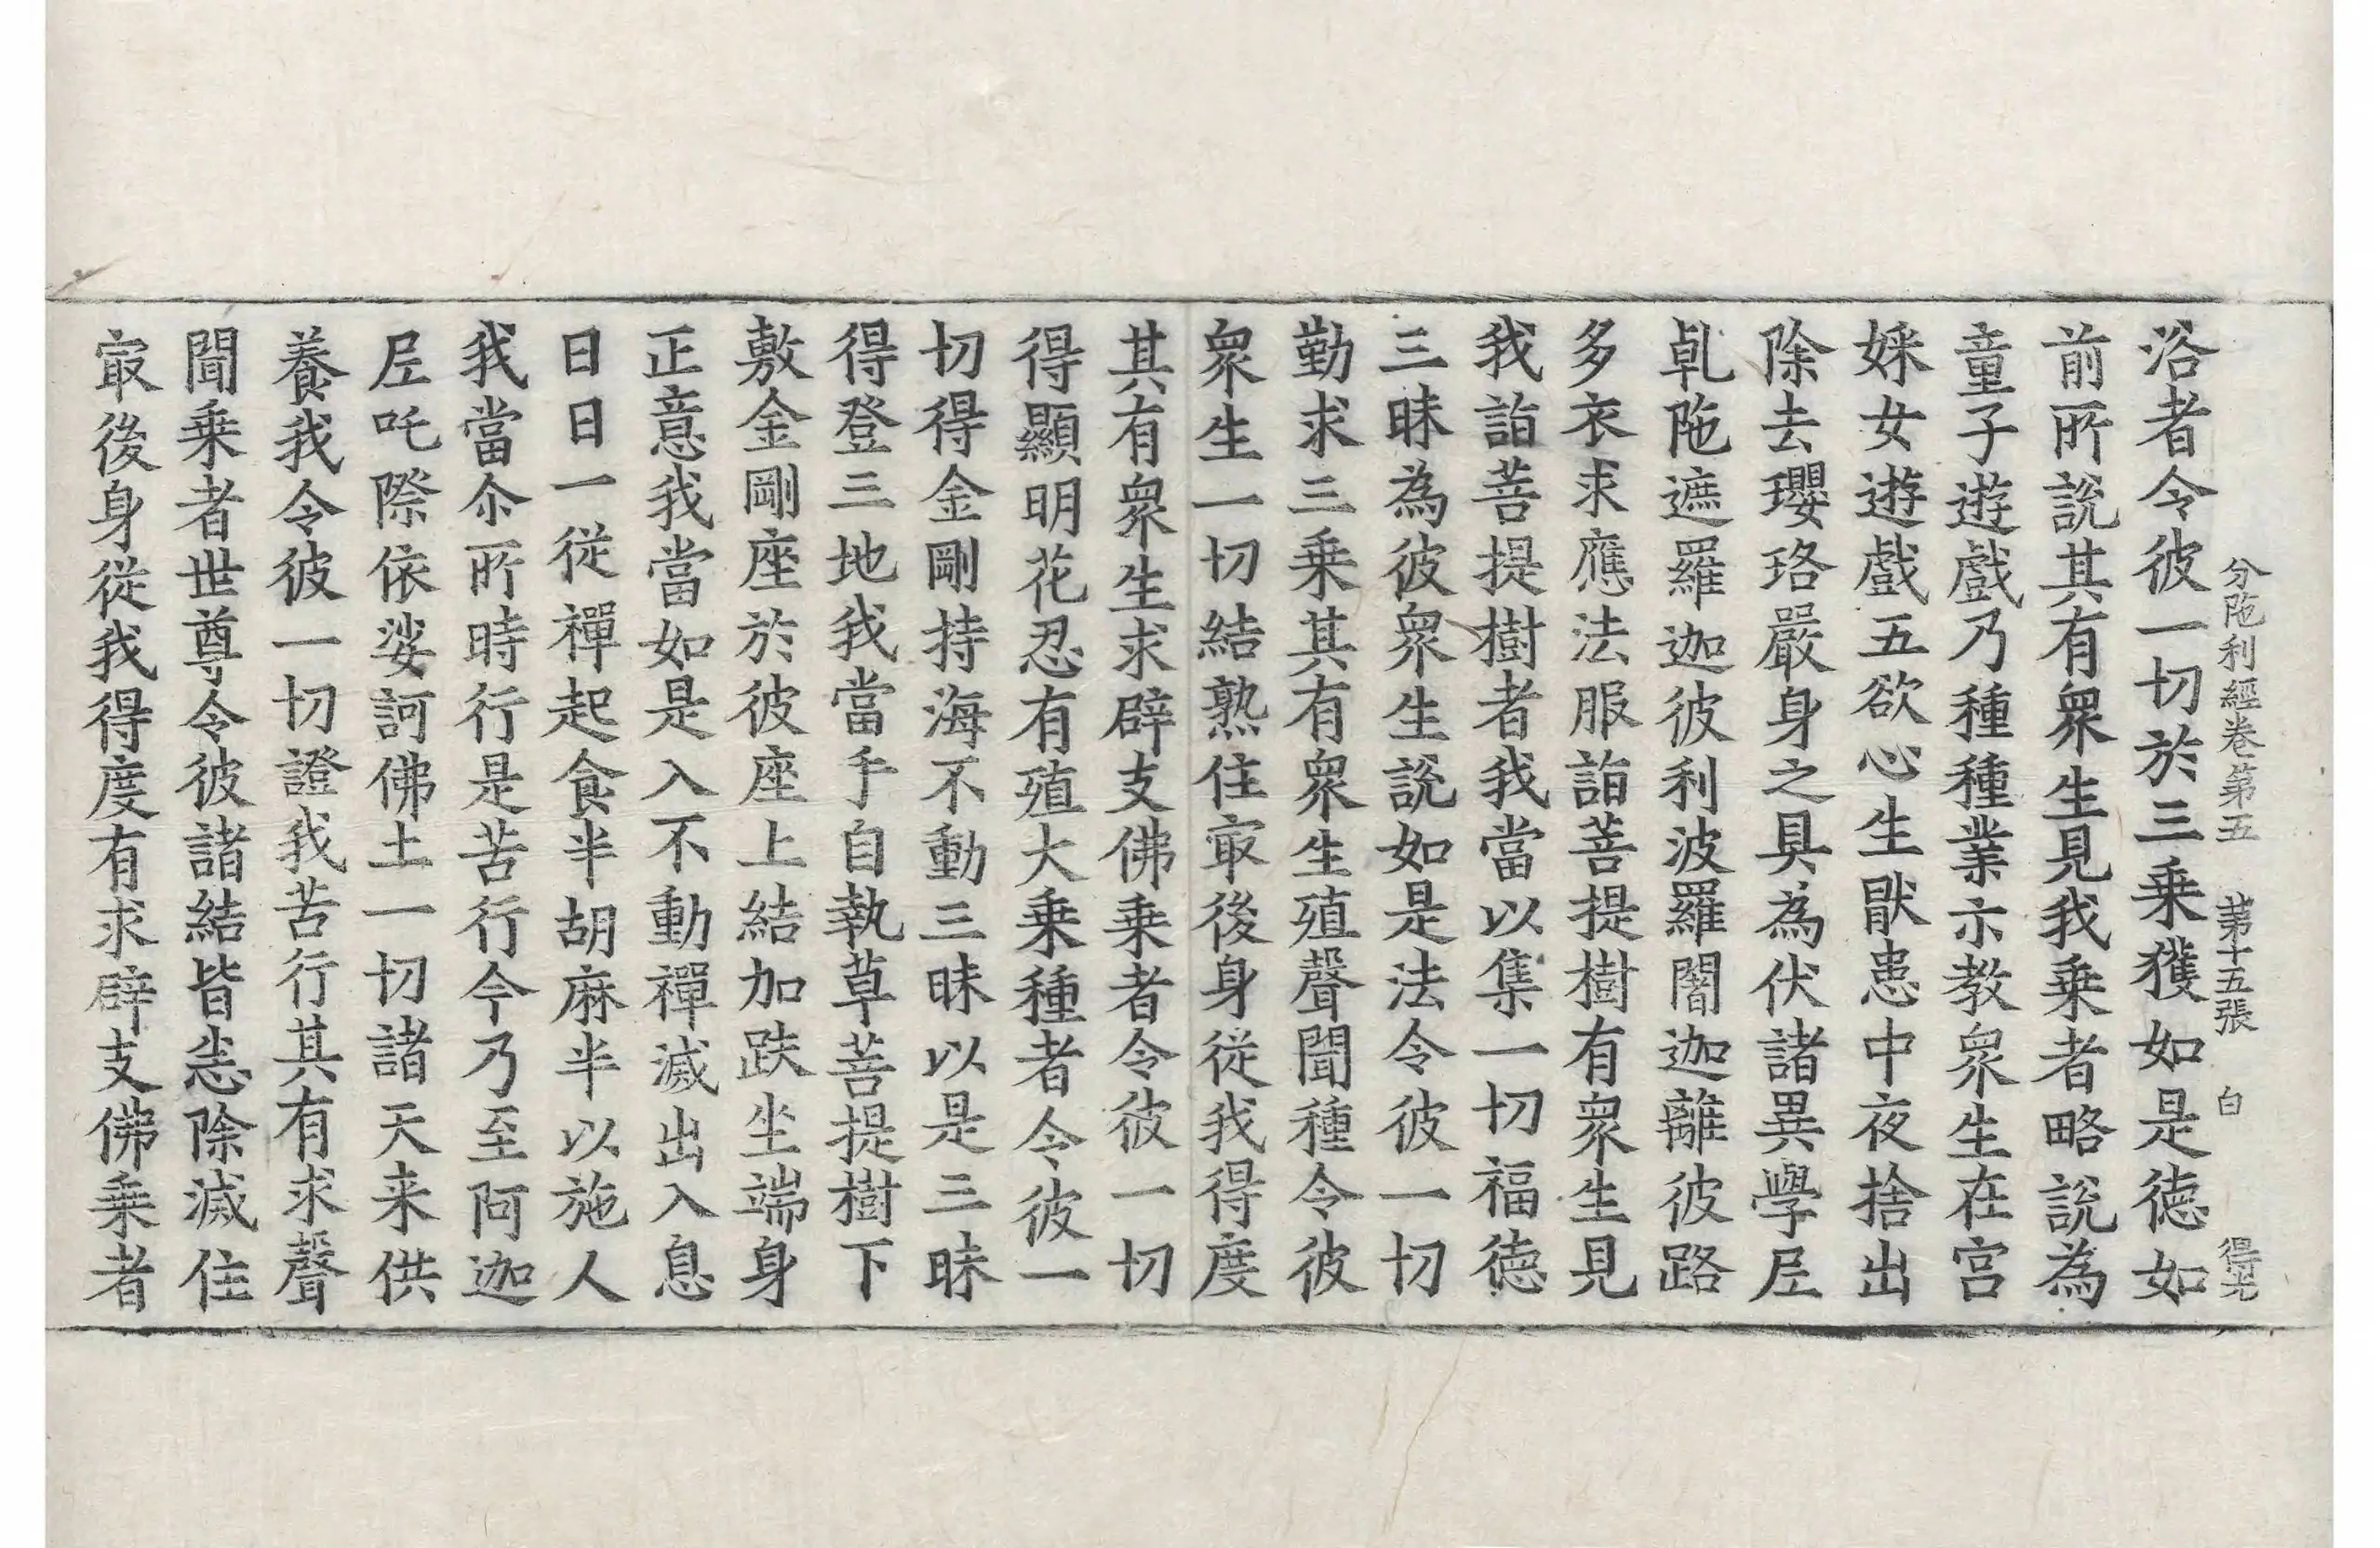 分陁利經卷第五 第十五張 白 得光
浴者令彼一切於三乗獲如是德如
前所說其有衆生見我乗者略說為
童子遊戲乃種種業示教衆生在宮
婇女遊戲五欲心生猒患中夜捨出
除去瓔珞嚴身之具為伏諸異學𡰱
乹陁遮羅迦彼利波羅闍迦離彼路
多衣求應法服詣菩提樹有衆生見
我詣菩提樹者我當以集一切福德
三昧為彼衆生說如是法令彼一切
勤求三乗其有衆生殖聲聞種令彼
衆生一切結熟住㝡後身從我得度
其有衆生求辟支佛乗者令彼一切
得顯明花忍有殖大乗種者令彼一
切得金剛持海不動三昧以是三昧
得登三地我當手自執草菩提樹下
敷金剛座於彼座上結加趺坐端身
正意我當如是入不動禪滅出入息
日日一從禪起食半胡麻半以施人
我當尒所時行是苦行今乃至阿迦
𡰱吒際依娑訶佛土一切諸天来供
養我令彼一切證我苦行其有求聲
聞乗者世尊令彼諸結皆悉除滅住
㝡後身從我得度有求辟支佛乗者